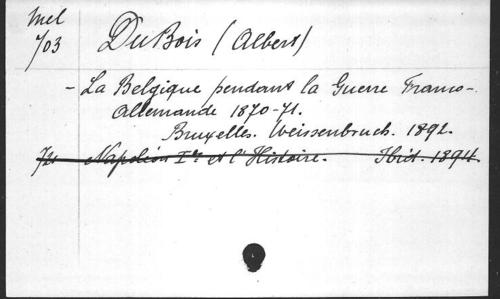 Mel
703
DuBois (Albert)
- La Belgique pendant la Guerre Franco-
Allemande 1870-71.
Bruxelles. Weissenbruch. 1892.
721 Napoléon Ier et l'Histoire. Ibid. 1894.